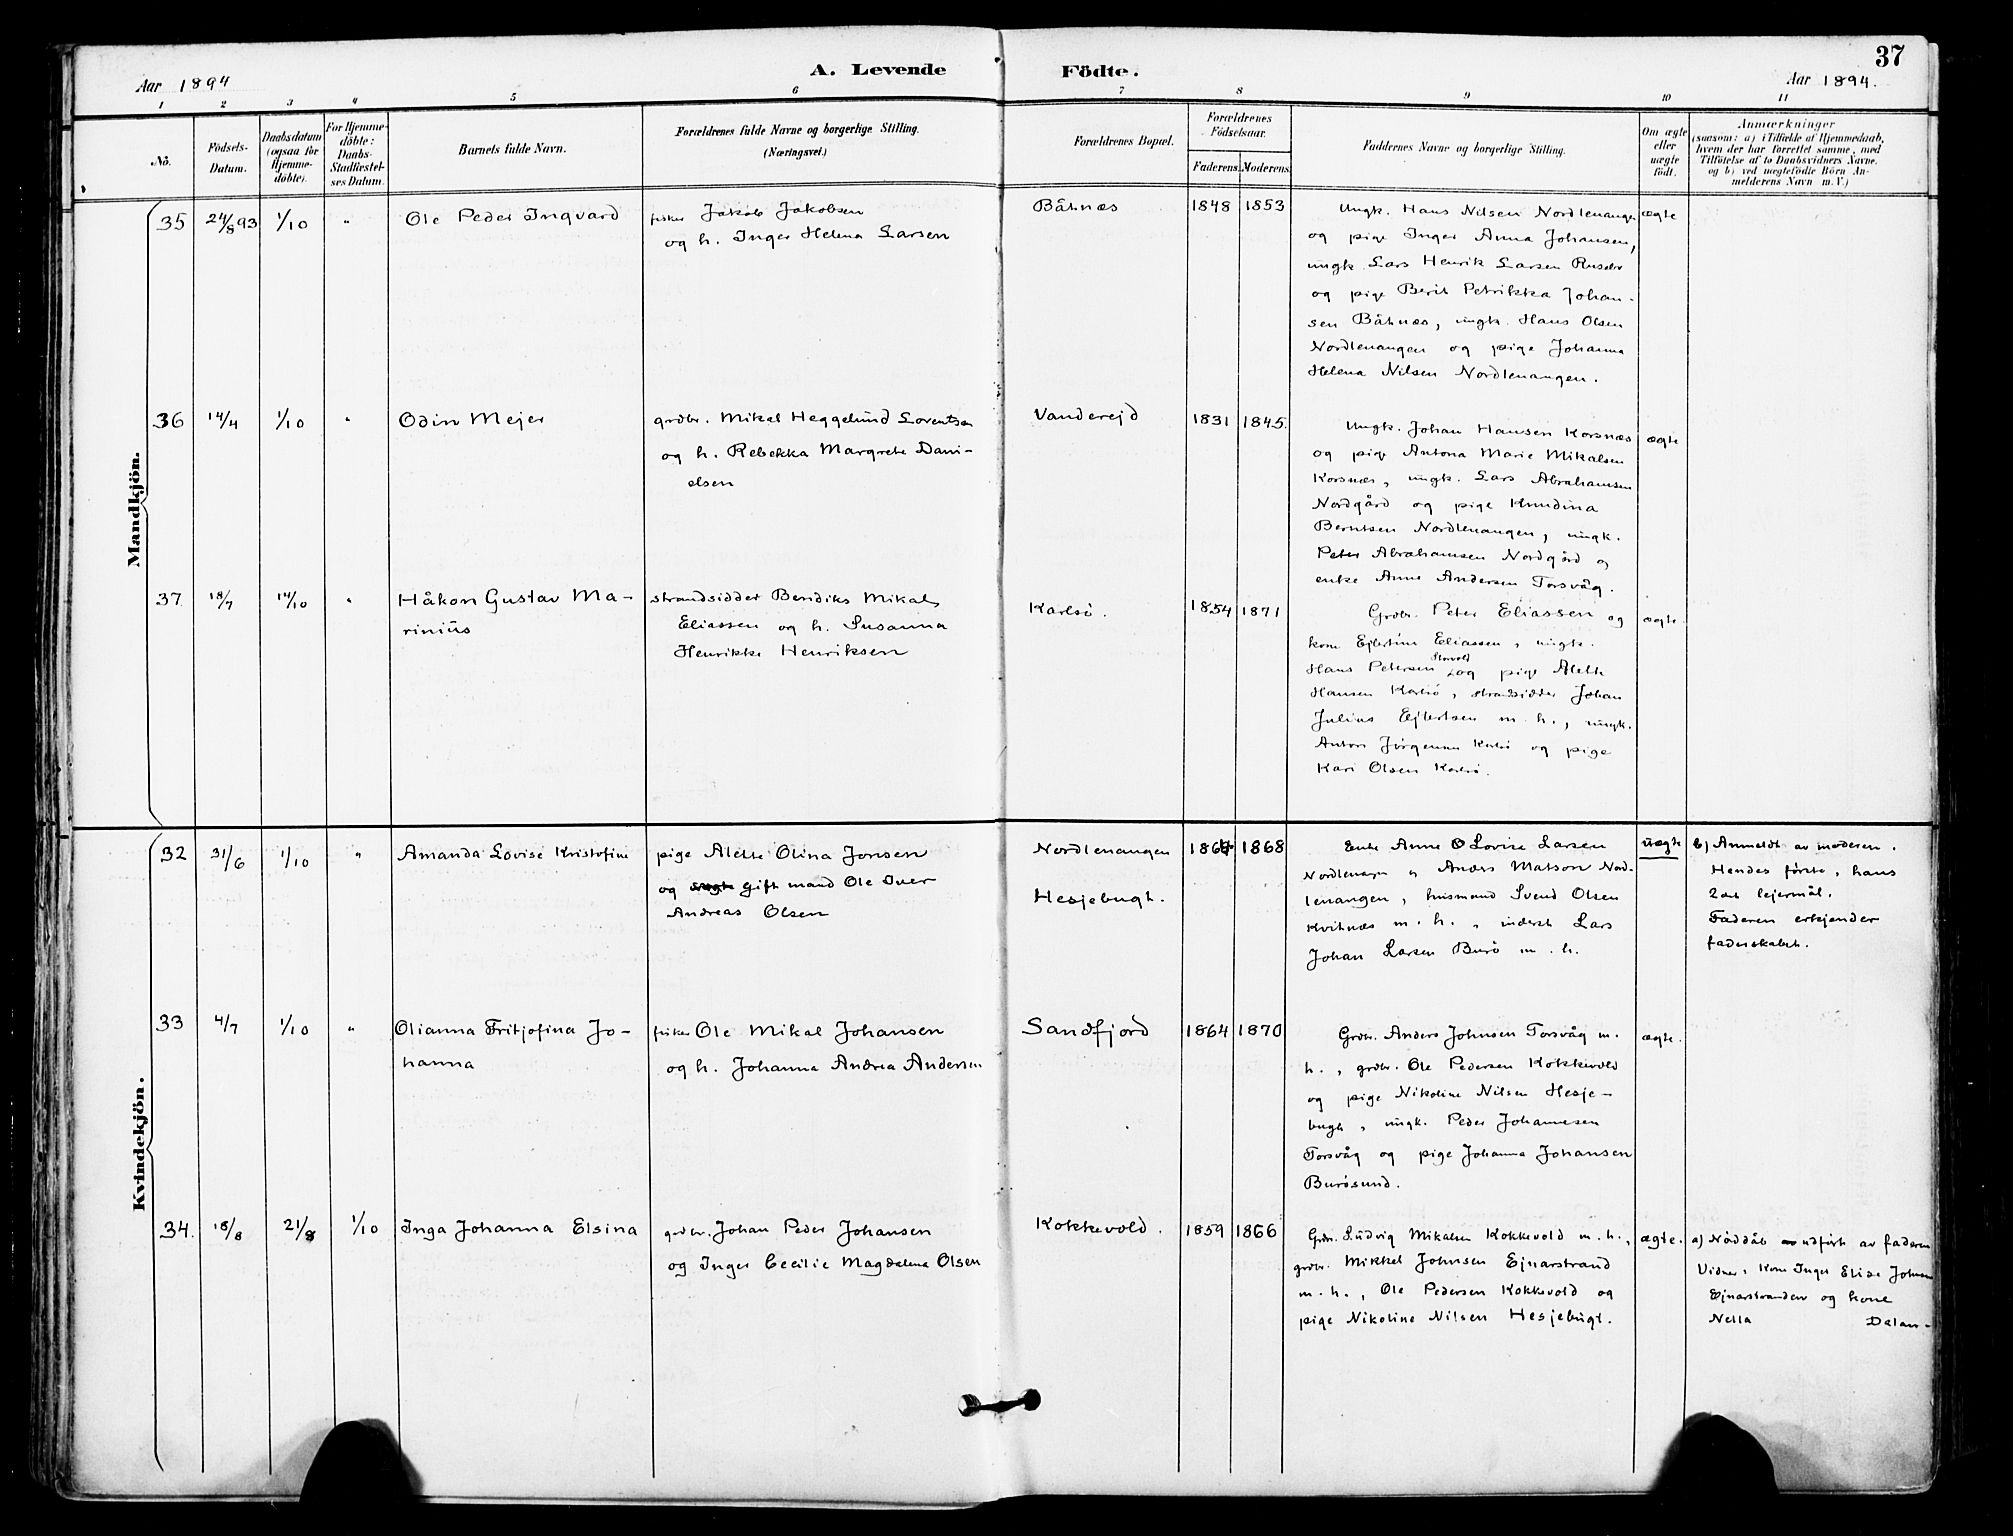 37
Aar 1894
A. Levende Födte.
Aar 1894.
1 2 3 4 5 6 7 8 9 10 11
Nô.
Födsels-
Datum.
Daabsdatum
(ogsaa for
Hjemme-
döbte).
For Hjemme-
döbte:
Daabs-
Stadfæstel-
ses Datum.
Barnets fulde Navn.
Forældrenes fulde Navne og borgerlige Stilling.
(Næringsvei.)
Forældrenes Bopæl.
Forældrenes
Födselsaar.
Faderens. Moderens.
Faddernes Navne og borgerlige Stilling.
Om ægte
eller
uægte
födt.
Anmærkninger
(saasom: a) i Tilfælde af Hjemmedaab,
hvem der har forrettet samme, med
Tilföielse af to Daabsvidners Navne.
og b) ved uægtefödte Börn An-
melderens Navn m.V.)
Mandkjön.
35 24/8 93 1/10 " Ole Peder Ingvard
fisker Jakob Jakobsen
og h. Inger Helena Larsen
Båtnæs 1848 1853
Ungk. Hans Nilsen Nordlenangen
og pige Inger Anna Johansen,
ungk. Lars Henrik Larsen
og pige Berit Petrikka Johan-
sen Båtnæs, ungk. Hans Olsen
Nordlenangen og pige Johanna
Helena Nilsen Nordlenangen.
ægte
36 14/4 1/10 " Odin Mejer
grdbr. Mikal Heggelund Lorentsen
og h. Rebekka Margrete Dani-
elsen
Vanderejd 1831 1845.
Ungk. Johan Hansen Korsnæs
og pige Antona Marie Mikalsen
Korsnæs, ungk. Lars Abrahamsen
Nordgård og pige Knudina
Berntsen Nordlenangen, ungk.
Peter Abrahamsen Nordgård og
enke Anne Andersen Torsvåg.
ægte
37. 18/7 14/10 " Håkon Gustav Ma-
rinius
strandsidder Bendiks Mikal
Eliassen og h. Susanna
Henrikke Henriksen
Karlsö. 1854 1871
Grdbr. Peter Eliassen og
kone Ejlertine Eliassen, ungk.
Hans Petersen Storvold og pige Alette
Hansen Karlsö, strandsidder Johan
Julius Ejlertsen m. h., ungk.
Anton Jörgensen Karlsö og pige
Kari Olsen Karlsö.
ægte.
Kvindekjön.
32 31/6 1/10 " Amanda Lovise Kristofine
pige Alette Olina Jonsen
og gift mand Ole Iver
Andreas Olsen
Nordlenangen
Hesjebugt.
1864 1868
Enke Anne O Lovise Larsen
Nordlenangen, Anders Matson Nord-
lenangen, husmand Svend Olsen
Kvitnæs m. h., inderst Lars
Johan Larsen Burö m. h.
uægte
b) Anmeldt av moderen.
Hendes förste, hans
2det lejermål.
Faderen erkjender
faderskabet.
33 4/7 1/10 " Olianna Fritjofina Jo-
hanna
fisker Ole Mikal Johansen
og h. Johanna Andrea Andersen
Sandfjord 1864 1870
Grdbr. Anders Johnsen Torsvåg m.
h., grdbr. Ole Pedersen Kokkevold
og pige Nikoline Nilsen Hesje-
bugt, ungk. Peder Johannesen
Torsvåg og pige Johanna Johansen
Burösund.
ægte.
34. 18/8 21/8 1/10 Inga Johanna Elsina
grdbr. Johan Peder Johansen
og Inger Cecilie Magdalena Olsen
Kokkevold. 1859 1866
Grdbr. Ludvig Mikalsen Kokkevold m. h.,
grdbr. Mikkel Johnsen Ejnarstrand
m. h., Ole Pedersen Kokkevold og
pige Nikoline Nilsen Hesjebugt.
ægte.
a) Nöddåb udfört av faderen
Vidner: Kone Inger Elise Johnsen
Ejnarstranden og kone
Nella Dalan-